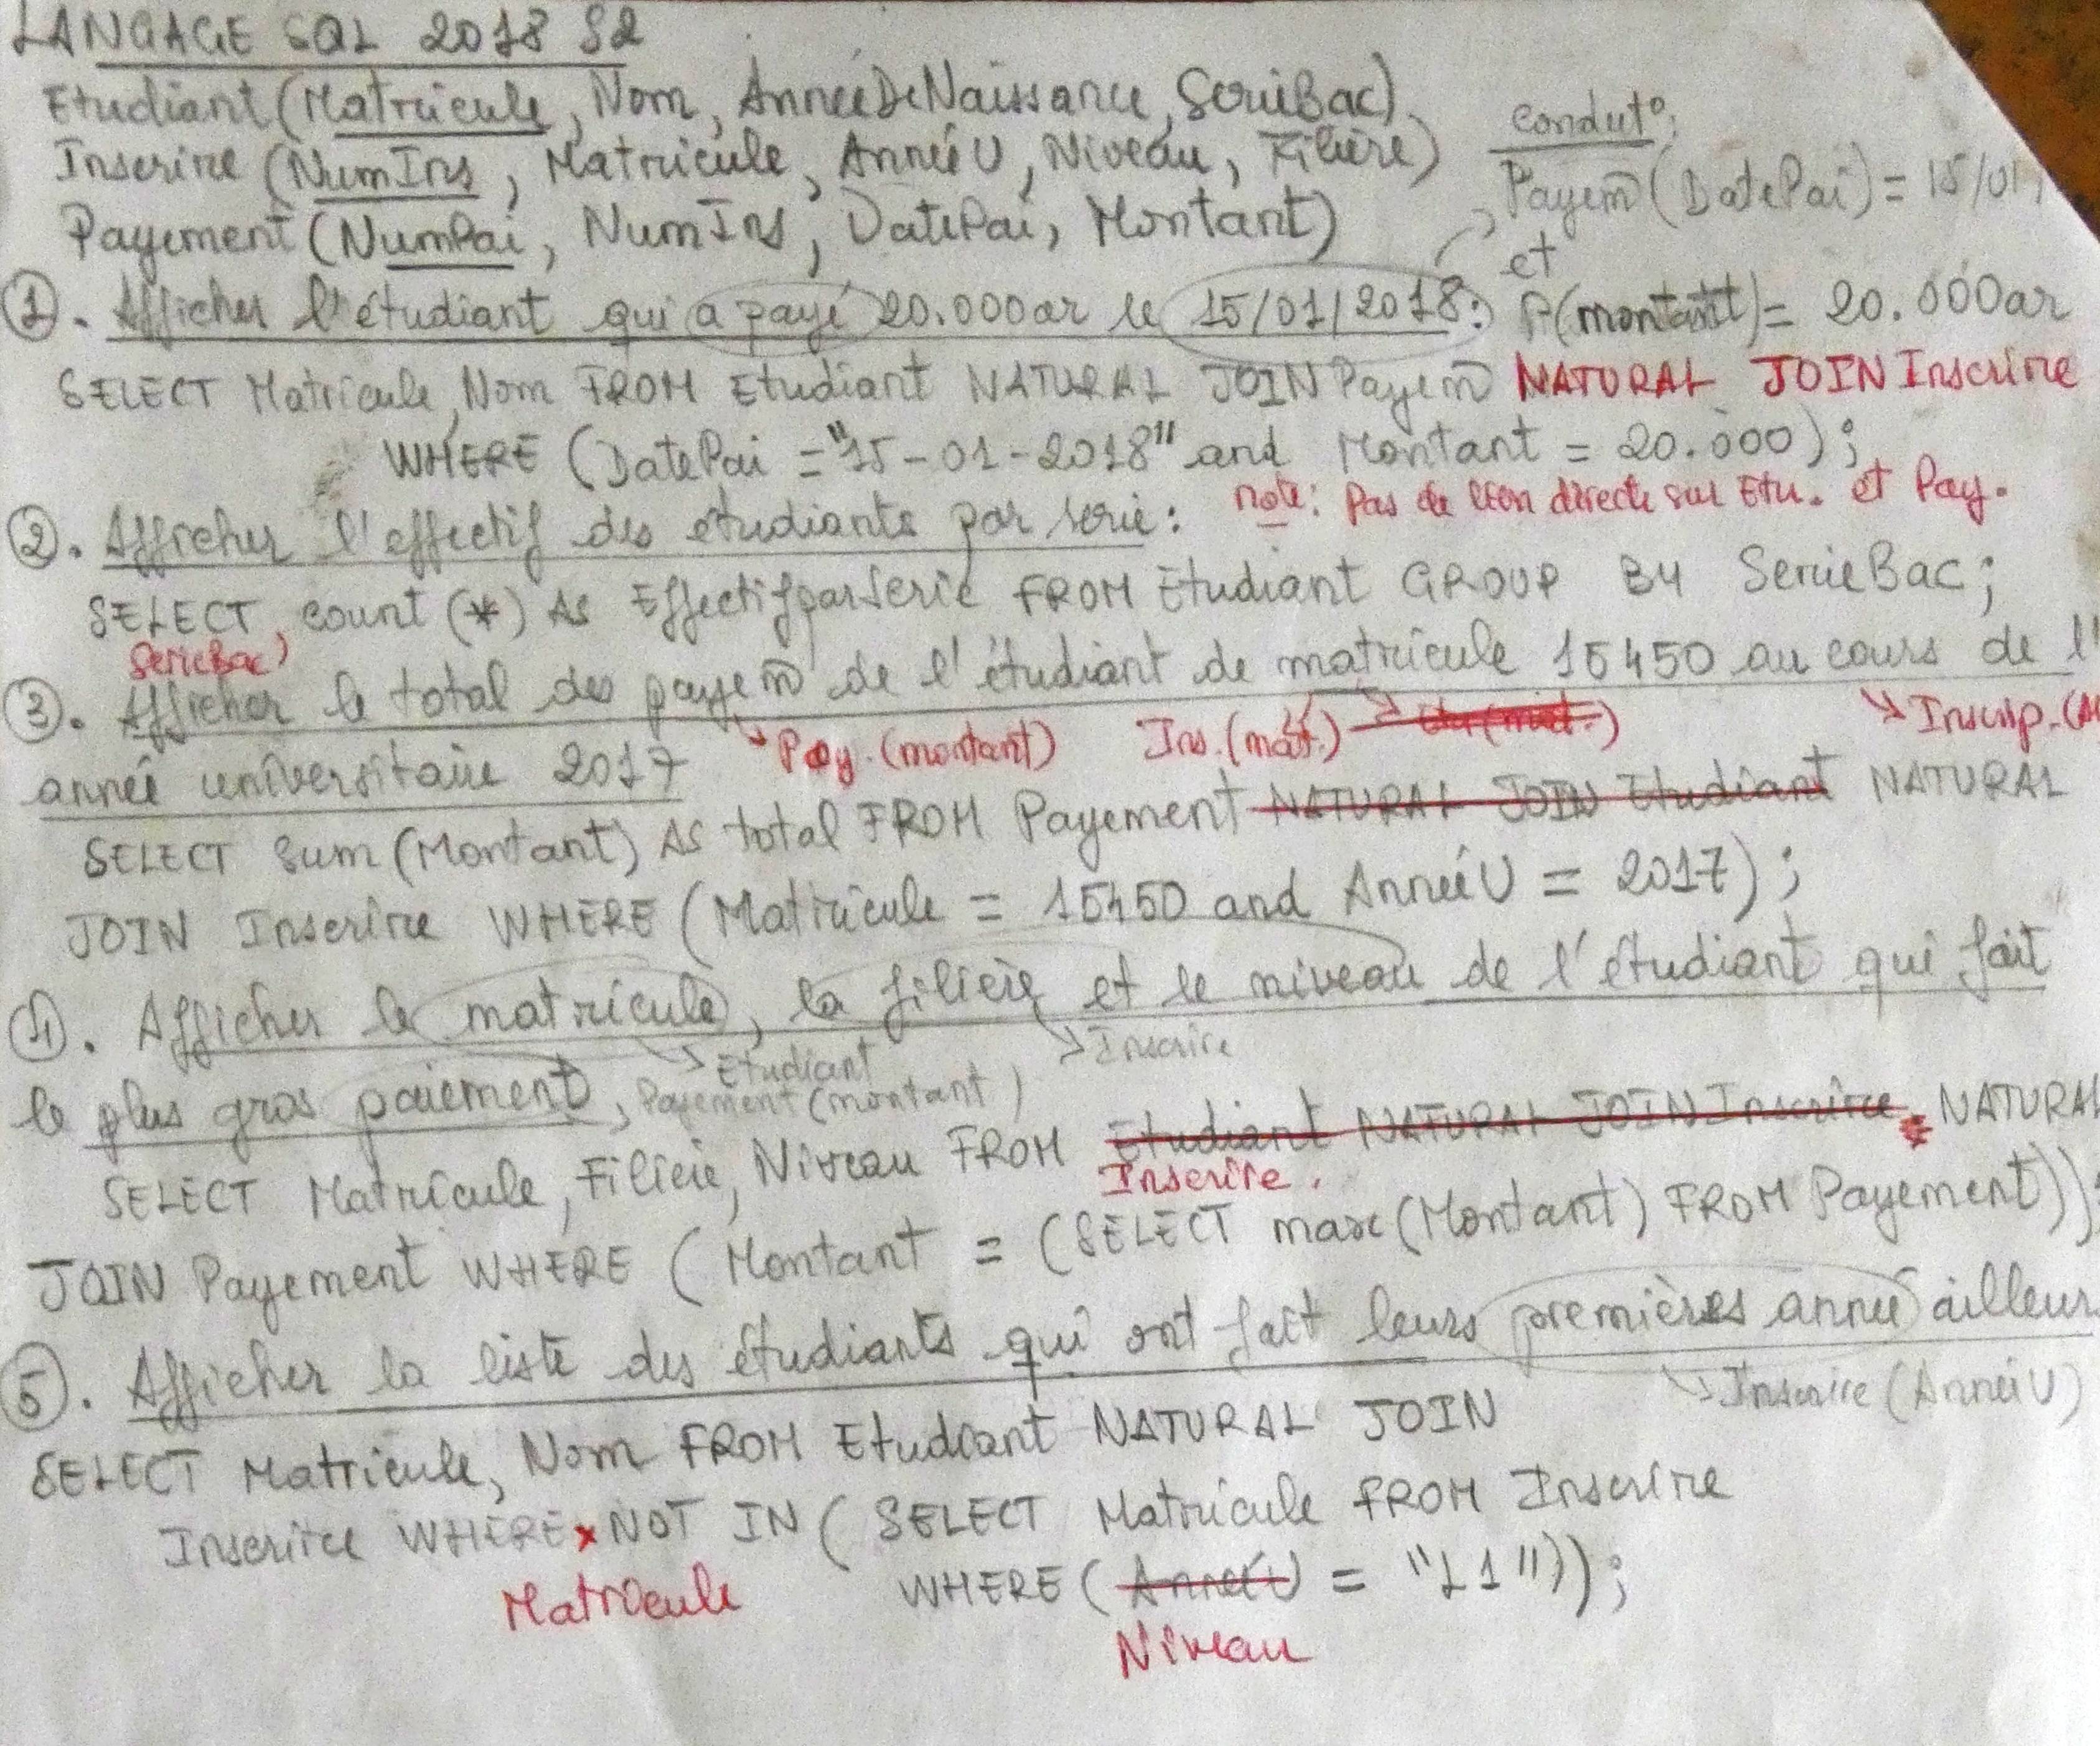 LANGAGE SQL 2018 S2
Etudiant (Matricule, Nom, AnnéeDeNaissance, SerieBac)
Inscrire (NumIns, Matricule, AnnéeU, Niveau, Filière)
Payement (NumPai, NumIns, DatePai, Montant)
condit°:
Payem̃ (DatePai) = 15/01/
et
P(montant) = 20.000ar
①. Afficher l'étudiant qui a payé 20.000ar le 15/01/2018:
SELECT Matricule, Nom FROM Etudiant NATURAL JOIN Payem̃ NATURAL JOIN Inscrire
WHERE (DatePai = "15-01-2018" and Montant = 20.000);
note: Pas de lien directe sur Etu. et Pay.
②. Afficher l'effectif des étudiants par serie:
SELECT, count (*) AS EffectifparSerie FROM Etudiant GROUP BY SerieBac;
SerieBac
③. Afficher le total des payem̃ de l'étudiant de matricule 15450 au cours de l'
Pay. (montant) Ins. (mat.) Etu (mat.) Inscrip. (A
année universitaire 2017
SELECT sum (Montant) AS total FROM Payement NATURAL JOIN Etudiant NATURAL
JOIN Inscrire WHERE (Matricule = 15450 and AnnéeU = 2017);
④. Afficher le matricule, la filière et le niveau de l'étudiant qui fait
Etudiant Inscrire
le plus gros paiement, Payement (montant)
SELECT Matricule, Filière, Niveau FROM Etudiant NATURAL JOIN Inscrire NATURAL
Inscrire.
JOIN Payement WHERE (Montant = (SELECT max (Montant) FROM Payement));
⑤. Afficher la liste des étudiants qui ont fait leurs premières année ailleurs
Inscrire (AnnéeU)
SELECT Matricule, Nom FROM Etudiant NATURAL JOIN
Inscrire WHERE x NOT IN (SELECT Matricule FROM Inscrire
Matricule WHERE (AnnéeU = "L1"));
Niveau